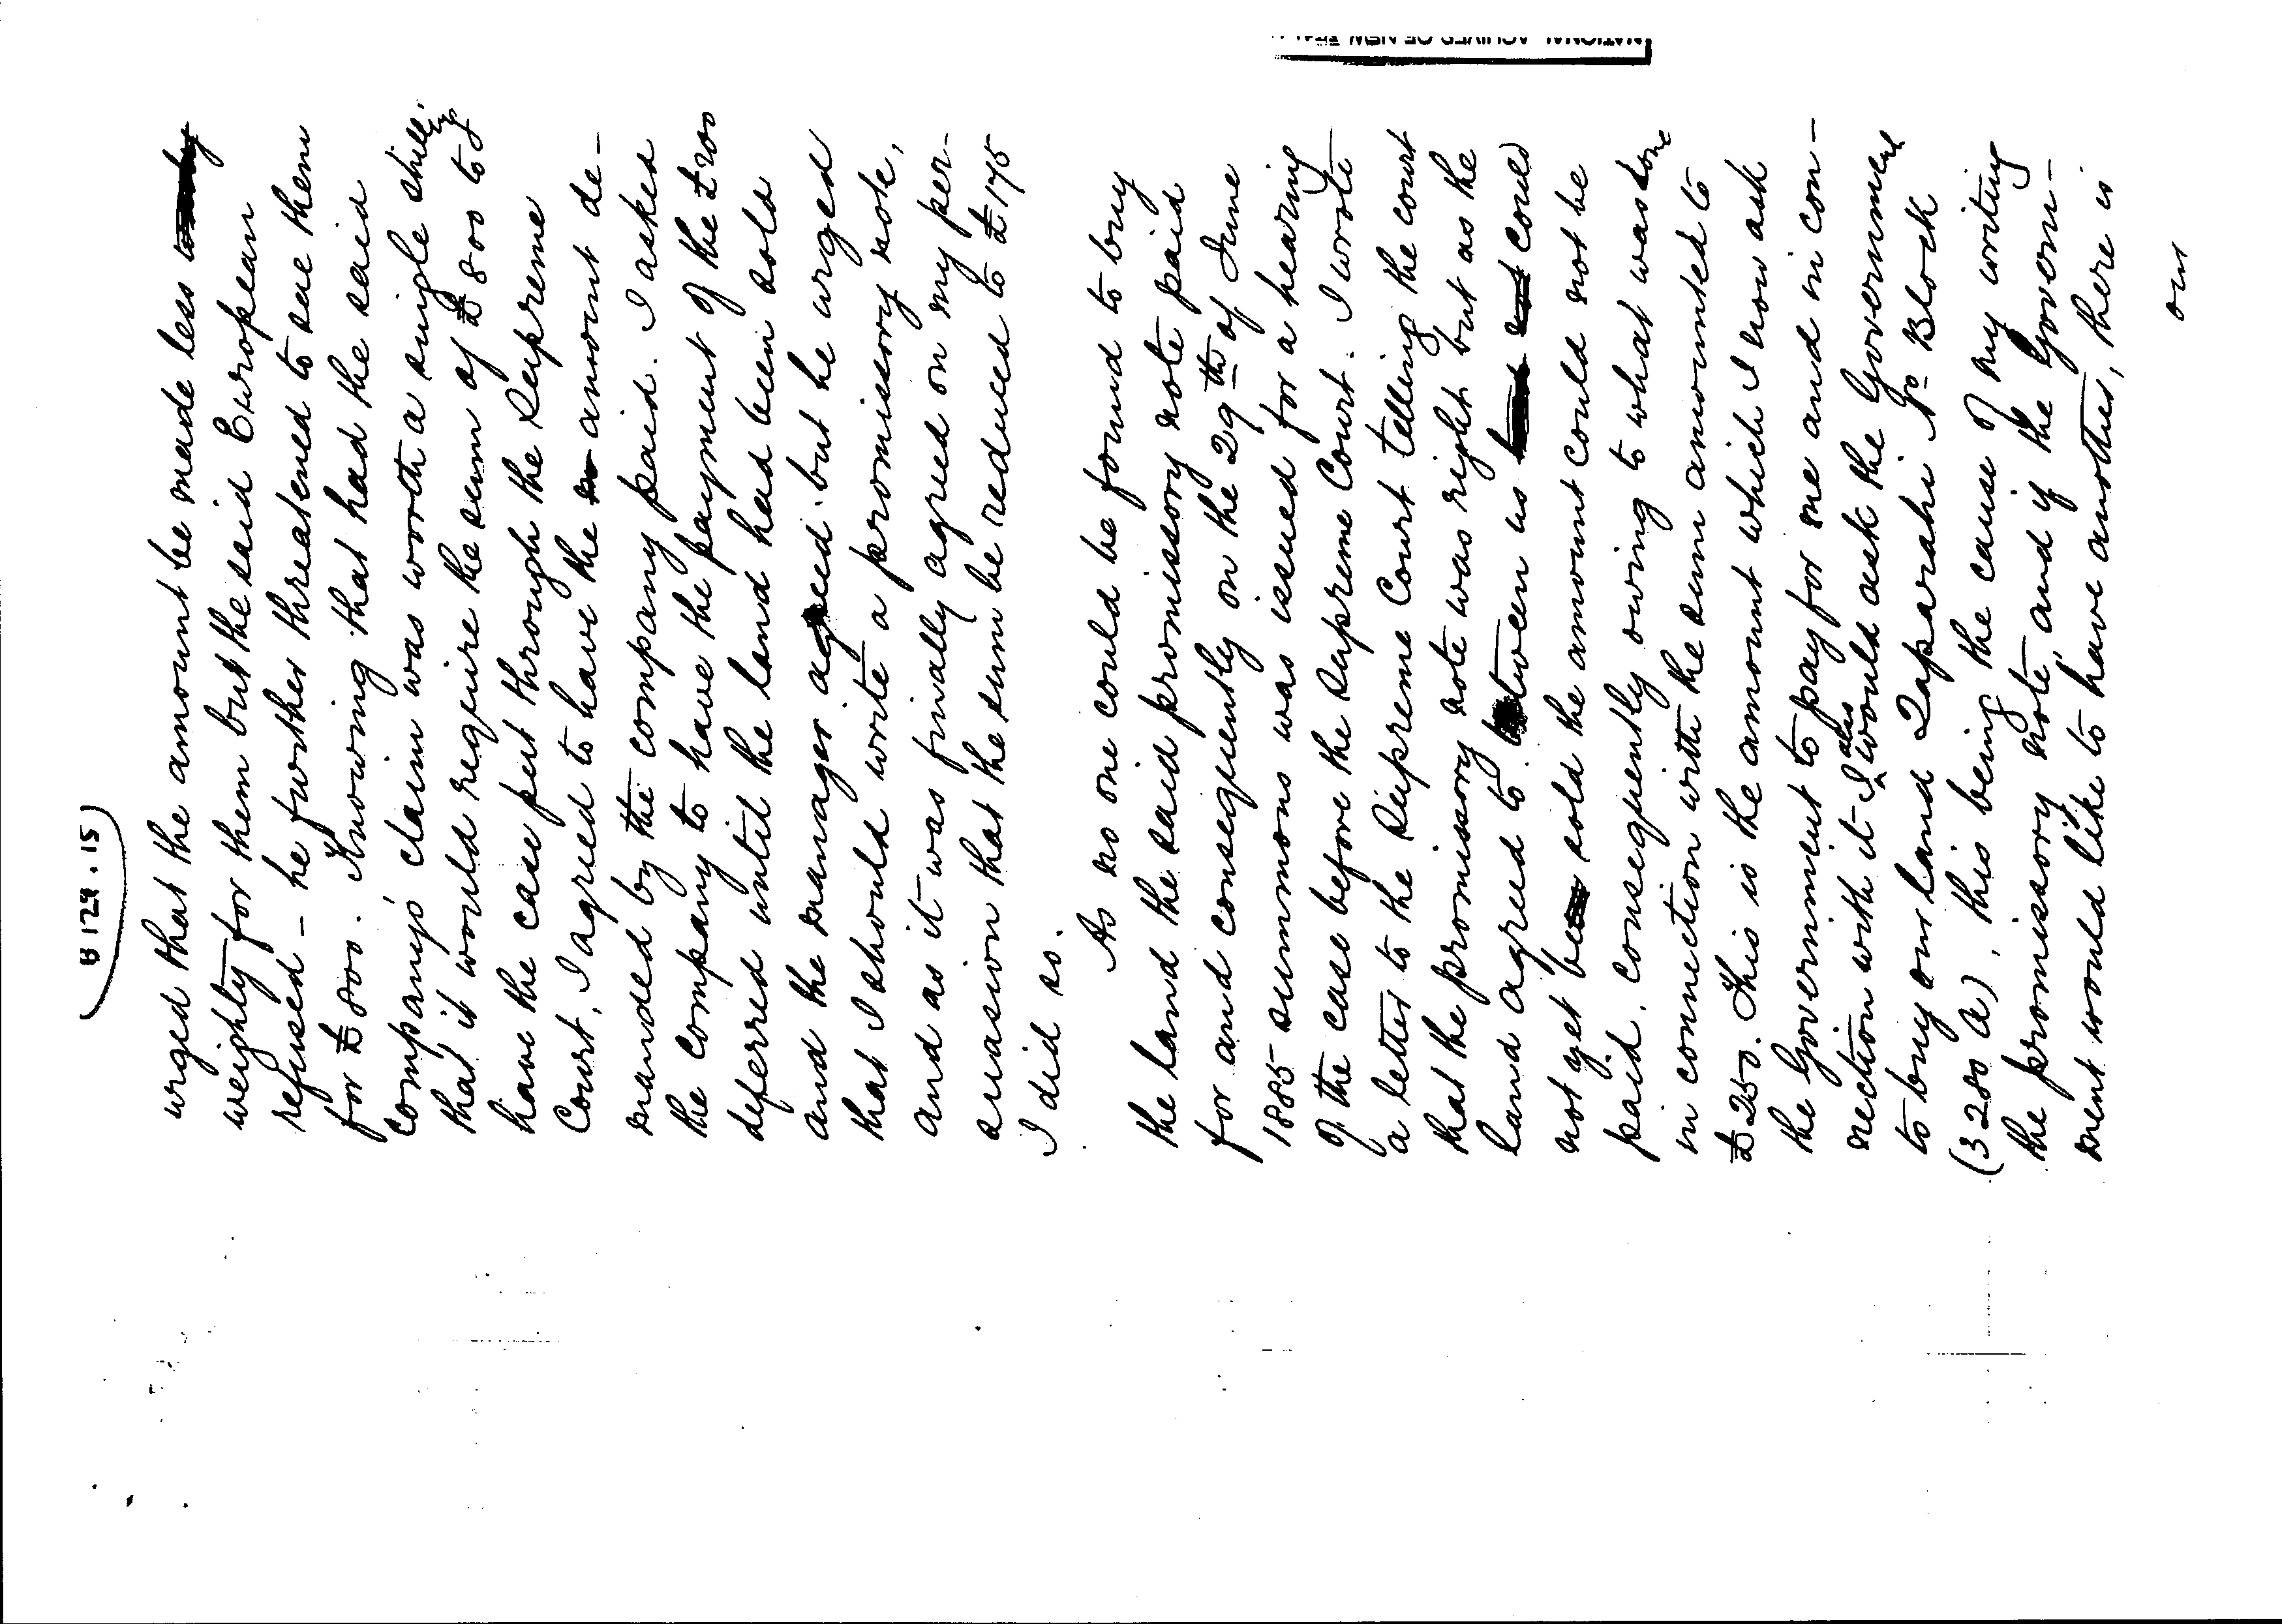 B 129.15
NATIONAL ARCHIVES OF NEW ZEALAND
urged that the amount be made less
weighty for them but the said European
refused – he further threatened to sue them
for £800. Knowing that had the said
company's claim was worth a single shilling
that it would require the sum of £800 to
have the case put through the Supreme
Court, I agreed to have the amount de-
manded by the company paid. I asked
the company to have the payment of the £200
deferred until the land had been sold
and the manager agreed but he urged
that I should write a promissory note,
and as it was finally agreed on my per-
suasion that the sum be reduced to £175
I did so.
As no one could be found to buy
the land the said promissory note paid
for and consequently on the 29th of June
1885 summons was issued for a hearing
of the case before the Supreme Court. I wrote
a letter to the Supreme Court telling the court
that the promissory note was right but as the
land agreed to between us could
not yet be sold the amount could not be
paid, consequently owing to what was done
in connection with the sum amounted to
£250. This is the amount which I now ask
the Government to pay for me and in con-
nection with it I also would ask the Government
to buy our land Taparahi No Block
(3200 a), this being the cause of my writing
the promissory note, and if the Govern-
ment would like to have another, there is
our